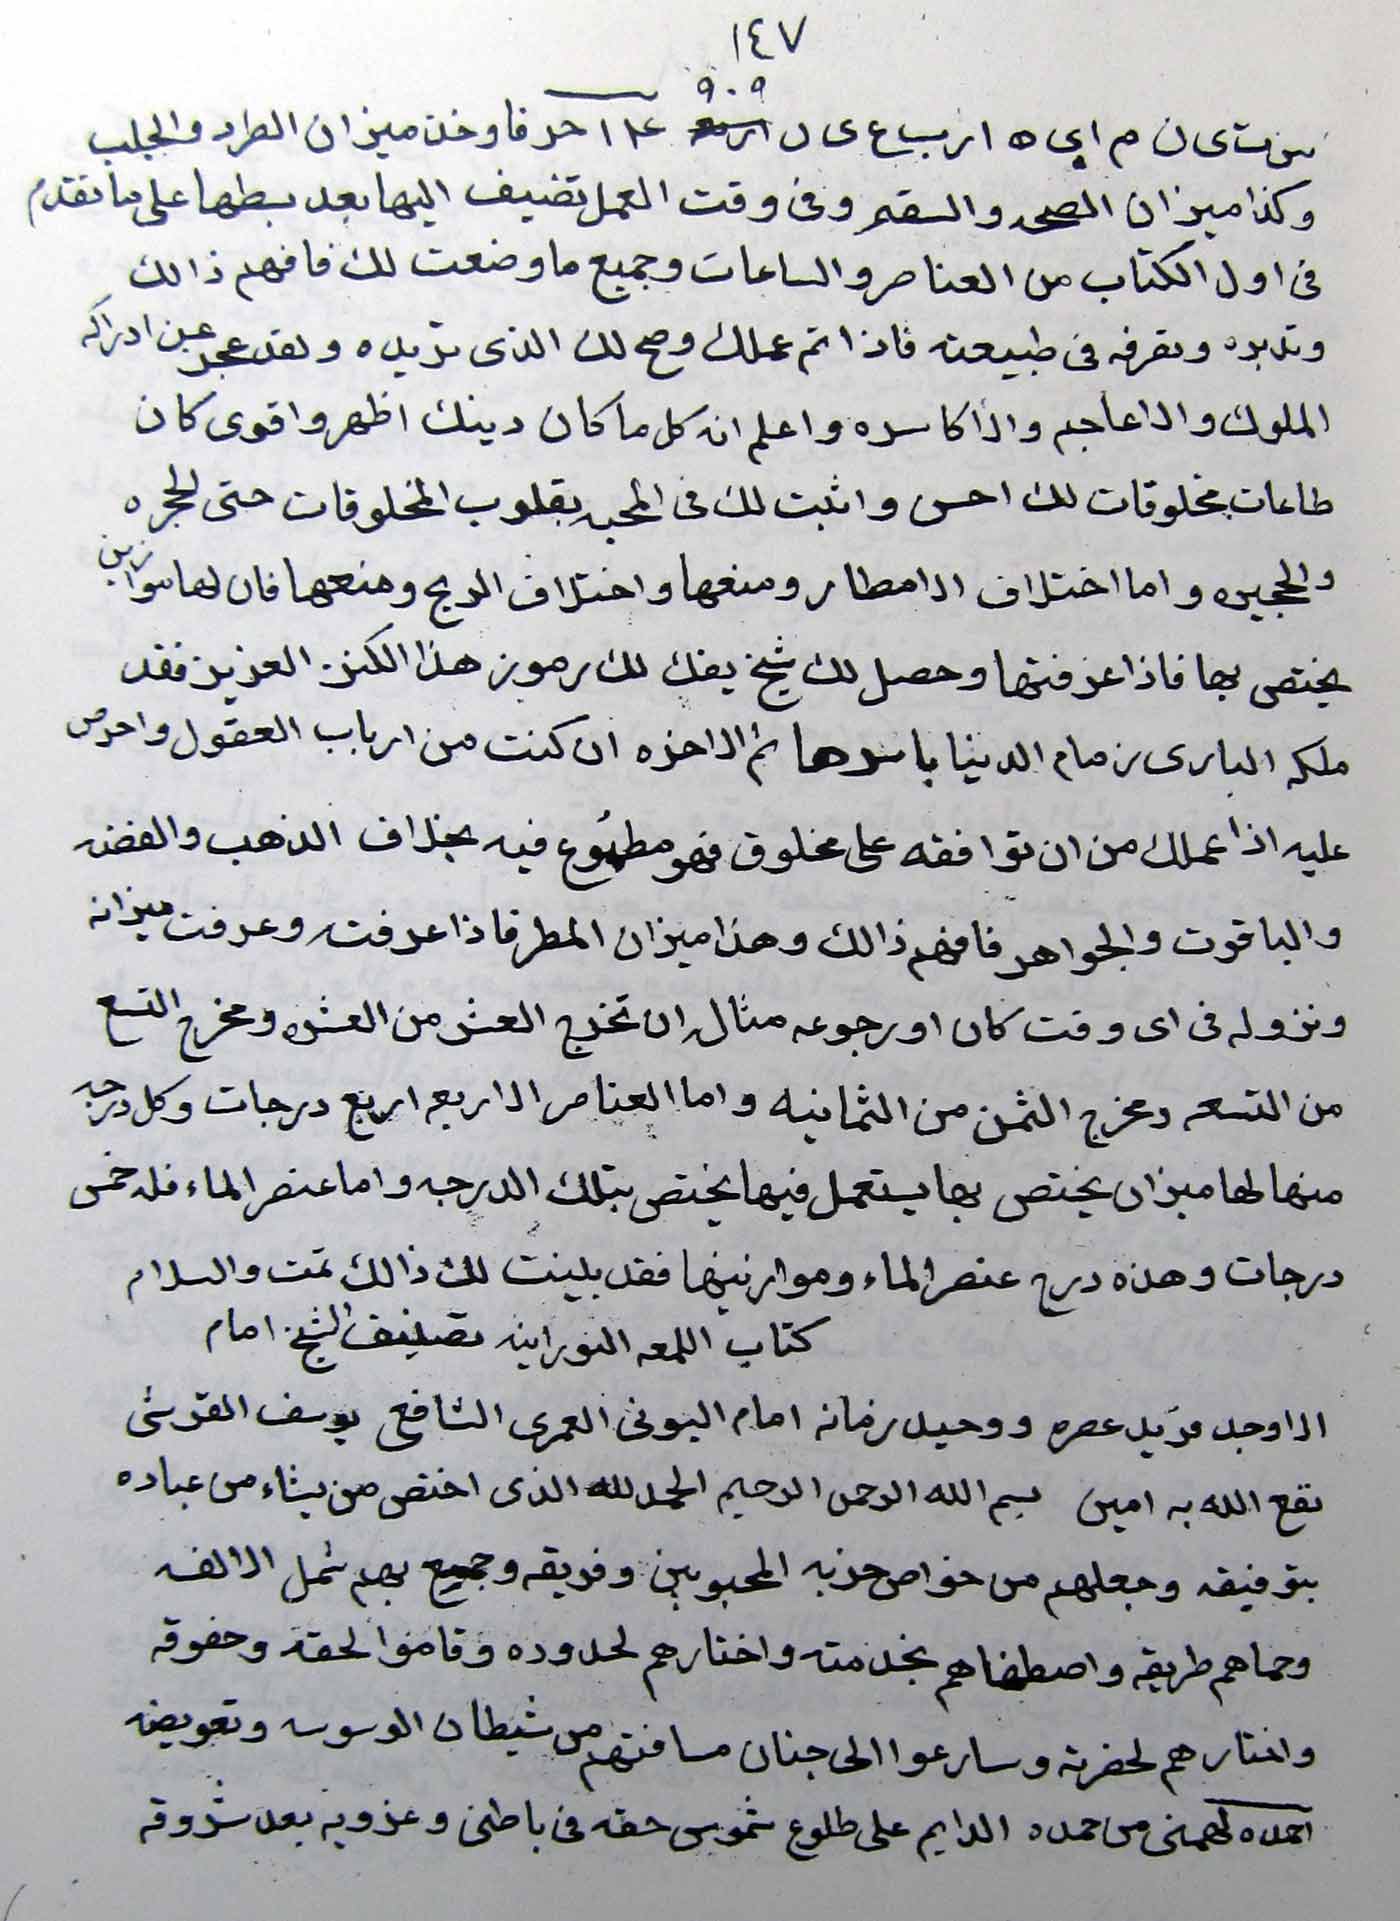 ١٤٧
٩٠٩
ى ن م اى ه ا ر ب ع ى ن حرفا وخذ ميزان الطرد والجلب
وكذا ميزان الصحه والسقم وفى وقت العمل تضيف اليها بعد بسطها على ما تقدم
فى اول الكتاب من العناصر والساعات وجميع ما وضعت لك فافهم ذالك
وتدبره وتعرفه فى طبيعته فاذا تم عملك وصح لك الذى تريده وتعد عجز عن ادراكه
الملوك والاعاجم والاكاسره واعلم ان كل ما كان دينك اظهر واقوى كان
طاعات مخلوقات لك احسن واثبت لك فى المحبه بقلوب المخلوقات حتى الحجره
والحجيره واما اختلاف الامطار ومنعها واختلاف الريح ومنعها فان لها موازين
يختص بها فاذا عرفتها وحصل لك شيخ يفك لك رموز هذا الكنز العزيز فقد
ملكه البارى زمام الدنيا باسرها ثم الاخره ان كنت من ارباب العقول واحرص
عليه اذا عملك من ان توافقه على مخلوق فهو مطبوع فيه بخلاف الذهب والفضه
والياقوت والجواهر فافهم ذالك وهذا ميزان المطر فاذا عرفت وعرفت ميزانه
ونزوله فى اى وقت كان او رجوعه مثال ان تخرج العشر من العشره ومخرج التسع
من التسعه ومخرج الثمن من الثمانيه واما العناصر الاربعه اربع درجات وكل درجه
منها لها ميزان يختص بها يستعمل فيها يختص بتلك الدرجه واما عنصر الماء فله خمس
درجات وهذه درج عنصر الماء وموازنيها فقد بلينت لك ذالك تمت والسلام
كتاب اللمعه النورانيه تصنيف الشيخ امام
الاوجد فريد عصره ووحيد زمانه امام البونى العمرى الشافعى يوسف القرشى
نفع الله به امين بسم الله الرحمن الرحيم الحمد لله الذى اختص من يشاء من عباده
بتوفيقه وجعلهم من خواص حزبه المحبوبين وفريقه وجميع بهم شمل الالفه
وحماهم طريقه واصطفاهم بخدمته واختارهم لحدوده وقاموا لحقه وحقوقه
واختارهم لحضرته وسارعوا الى جنان مسافتهم من شيطان الوسوسه وتعويضه
احمده من حمده الدايم على طلوع شموس حقه فى باطنى وعذوبه بعد شروقه